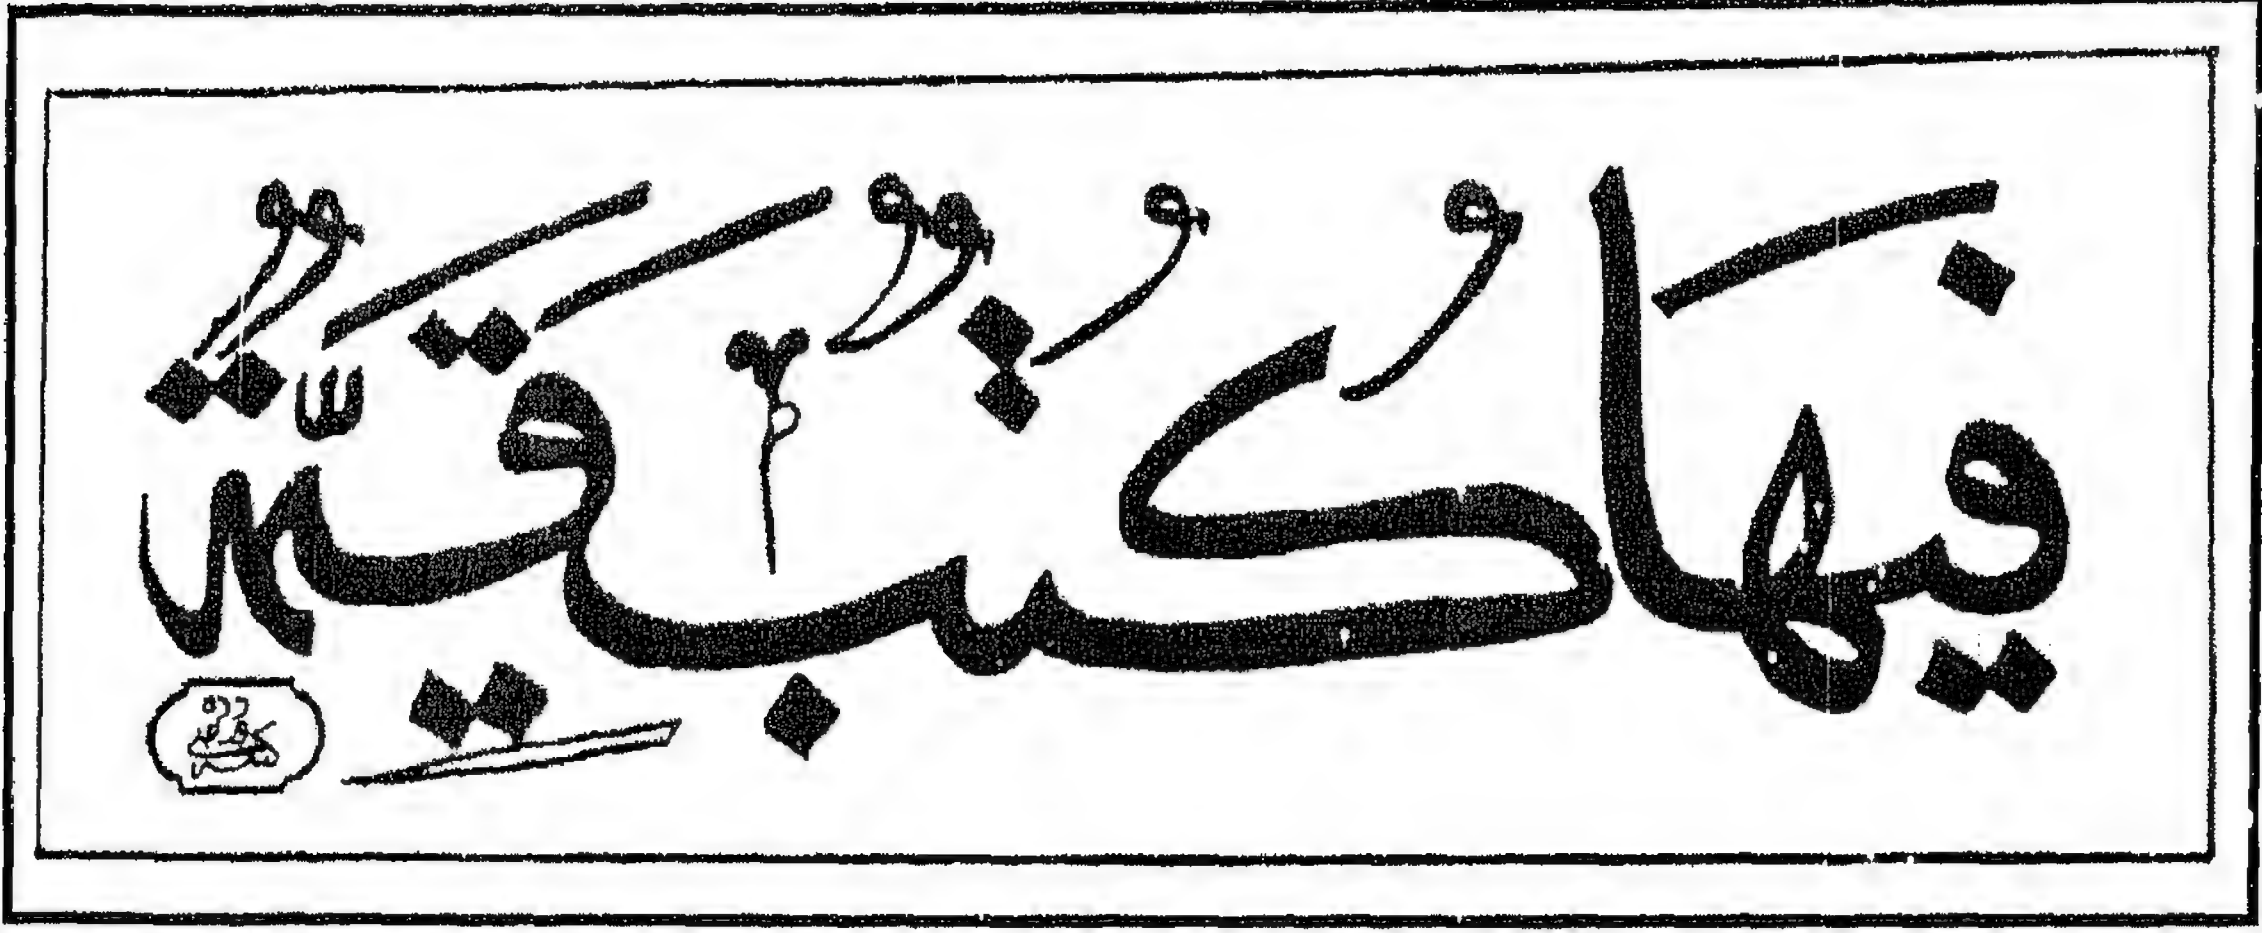 فِيهَا كُتُبٌ قَيِّمَةٌ